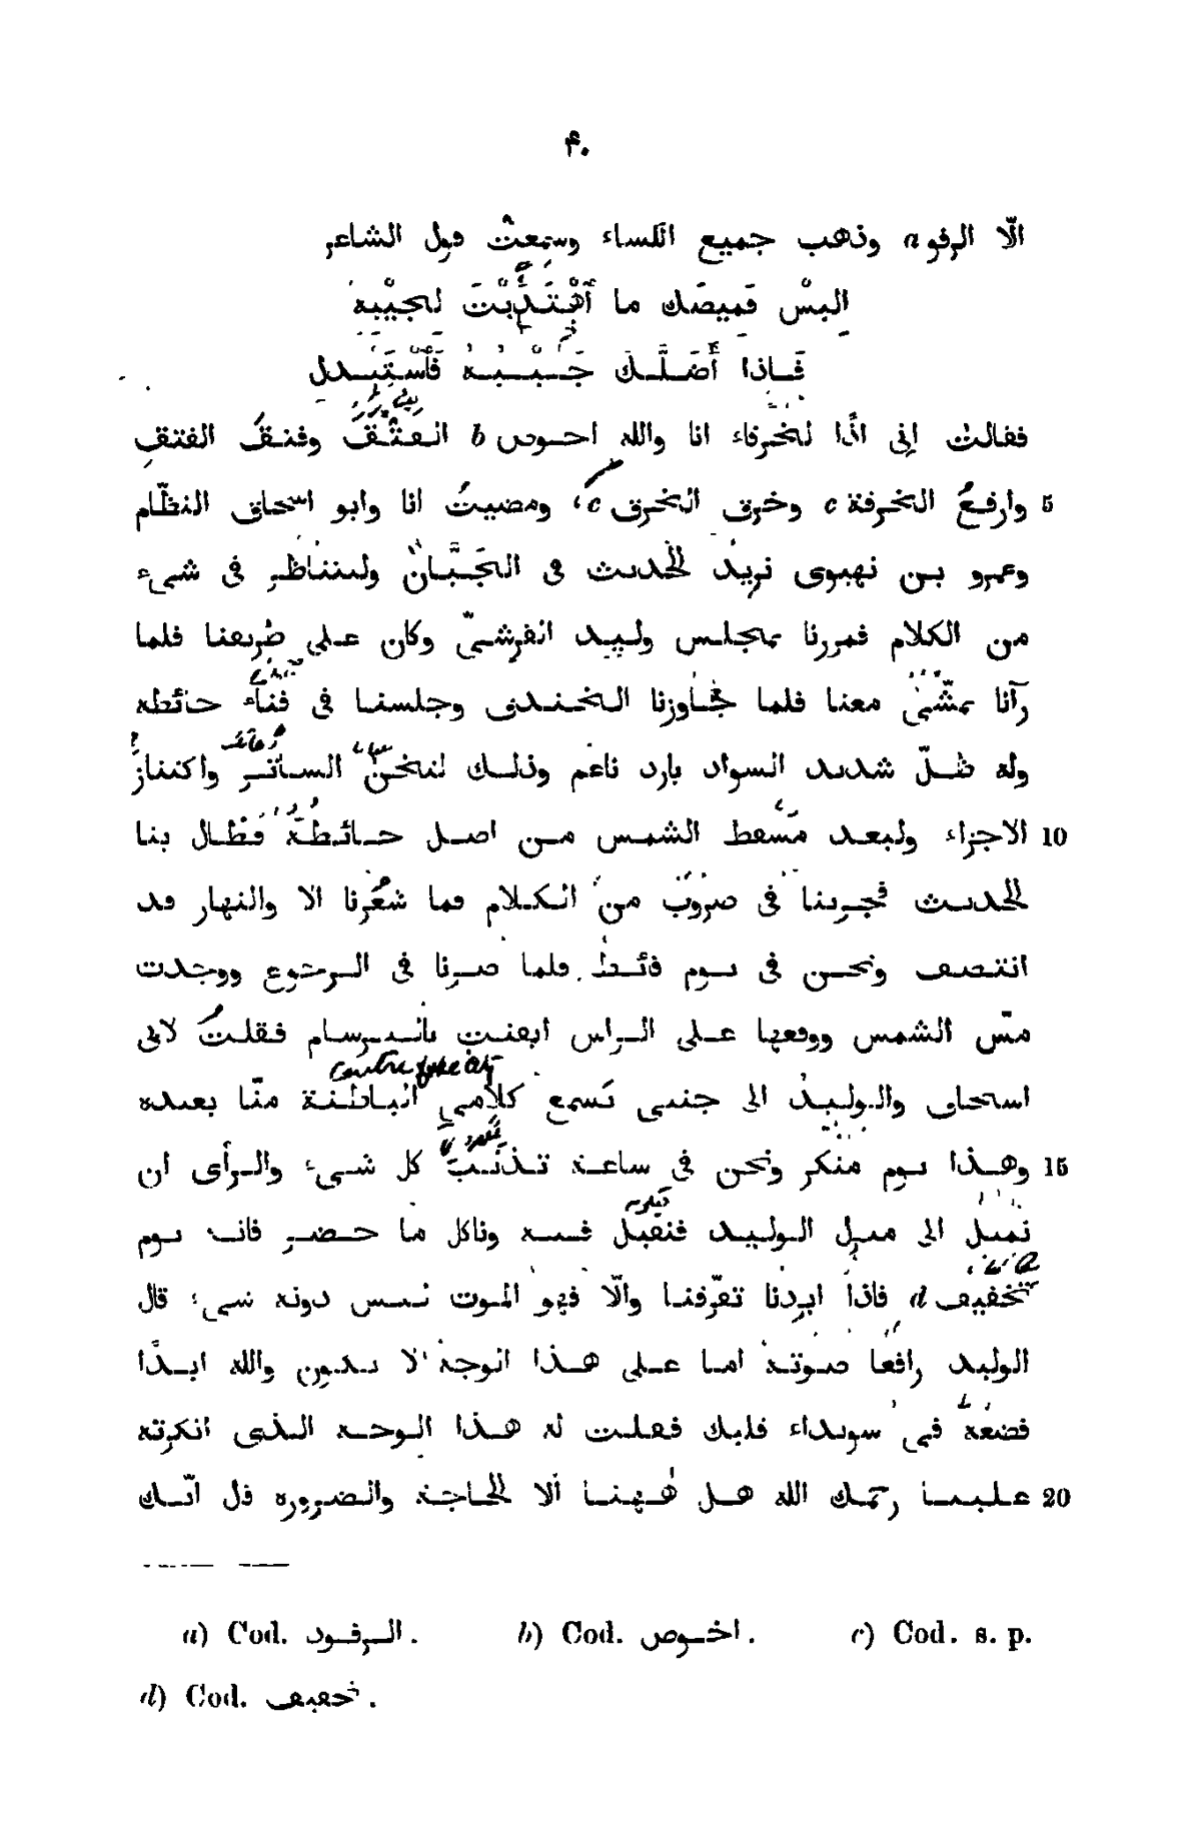 ۴۰
الّا الرفو a وذهب جميع الكساء وسمعتُ قول الشاعر
البسْ قميصَك ما اهْتَدَيْتَ لجيْبِهِ
فَاذا أَضَلَّكَ جَيْبُهُ فَاسْتَبْدِلِ
فقالت انى اذًا لخرقاء انا والله احوص b الفتق وفتق الفتق
5 وارقع الخرقة c وخرق الخرق c، ومضيتُ انا وابو اسحاق النظّام
وعمرو بن نهيوى نريد الحديث فى الجَبَّان ولنتناظر فى شىء
من الكلام فمررنا بمجلس وليد القرشىّ وكان على طريقنا فلما
رآنا تمشّى معنا فلما تجاوزنا الخندق وجلسنا فى فناء حائطه
وله ظلّ شديد السواد بارد ناعم وذلك لثخن الساتر واكتناز
10 الاجزاء ولبعد مسقط الشمس من اصل حائطة فطال بنا
الحديث فجرينا فى ضروب من الكلام فما شعُرنا الا والنهار قد
انتصف ونحن فى يوم قائظ فلما صرنا فى الرجوع ووجدت
مسّ الشمس ووقعها على الراس ايقنت بالبرسام فقلتُ لابى
اسحاق والوليد الى جنبى تسمع كلامى الباطنة منّا بعيدة
15 وهذا يوم منكر ونحن فى ساعة تذيب كل شىء والرأى ان
نميل الى منزل الوليد فنقيل فيه وناكل ما حضر فانه يوم
تخفيف d فاذا ابردنا تفرّقنا والّا فهو الموت ليس دونه شىء قال
الوليد رافعًا صوته اما على هذا الوجه لا يكون والله ابدًا
فضعه فى سويداء قلبك فقلت له هذا الوجه الذى انكرته
20 علينا رحمك الله هل هٰهنا الا الحاجة والضرورة قال انّك
a) Cod. الرفود. b) Cod. اخوص. c) Cod. s. p.
d) Cod. خفيف.